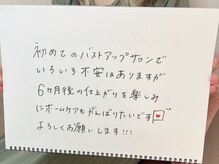 初めてのバストアップサロンで
いろいろ不安はありますが
6ヶ月後の仕上がりを楽しみ
にホームケアもがんばりたいです
よろしくお願いします!!!